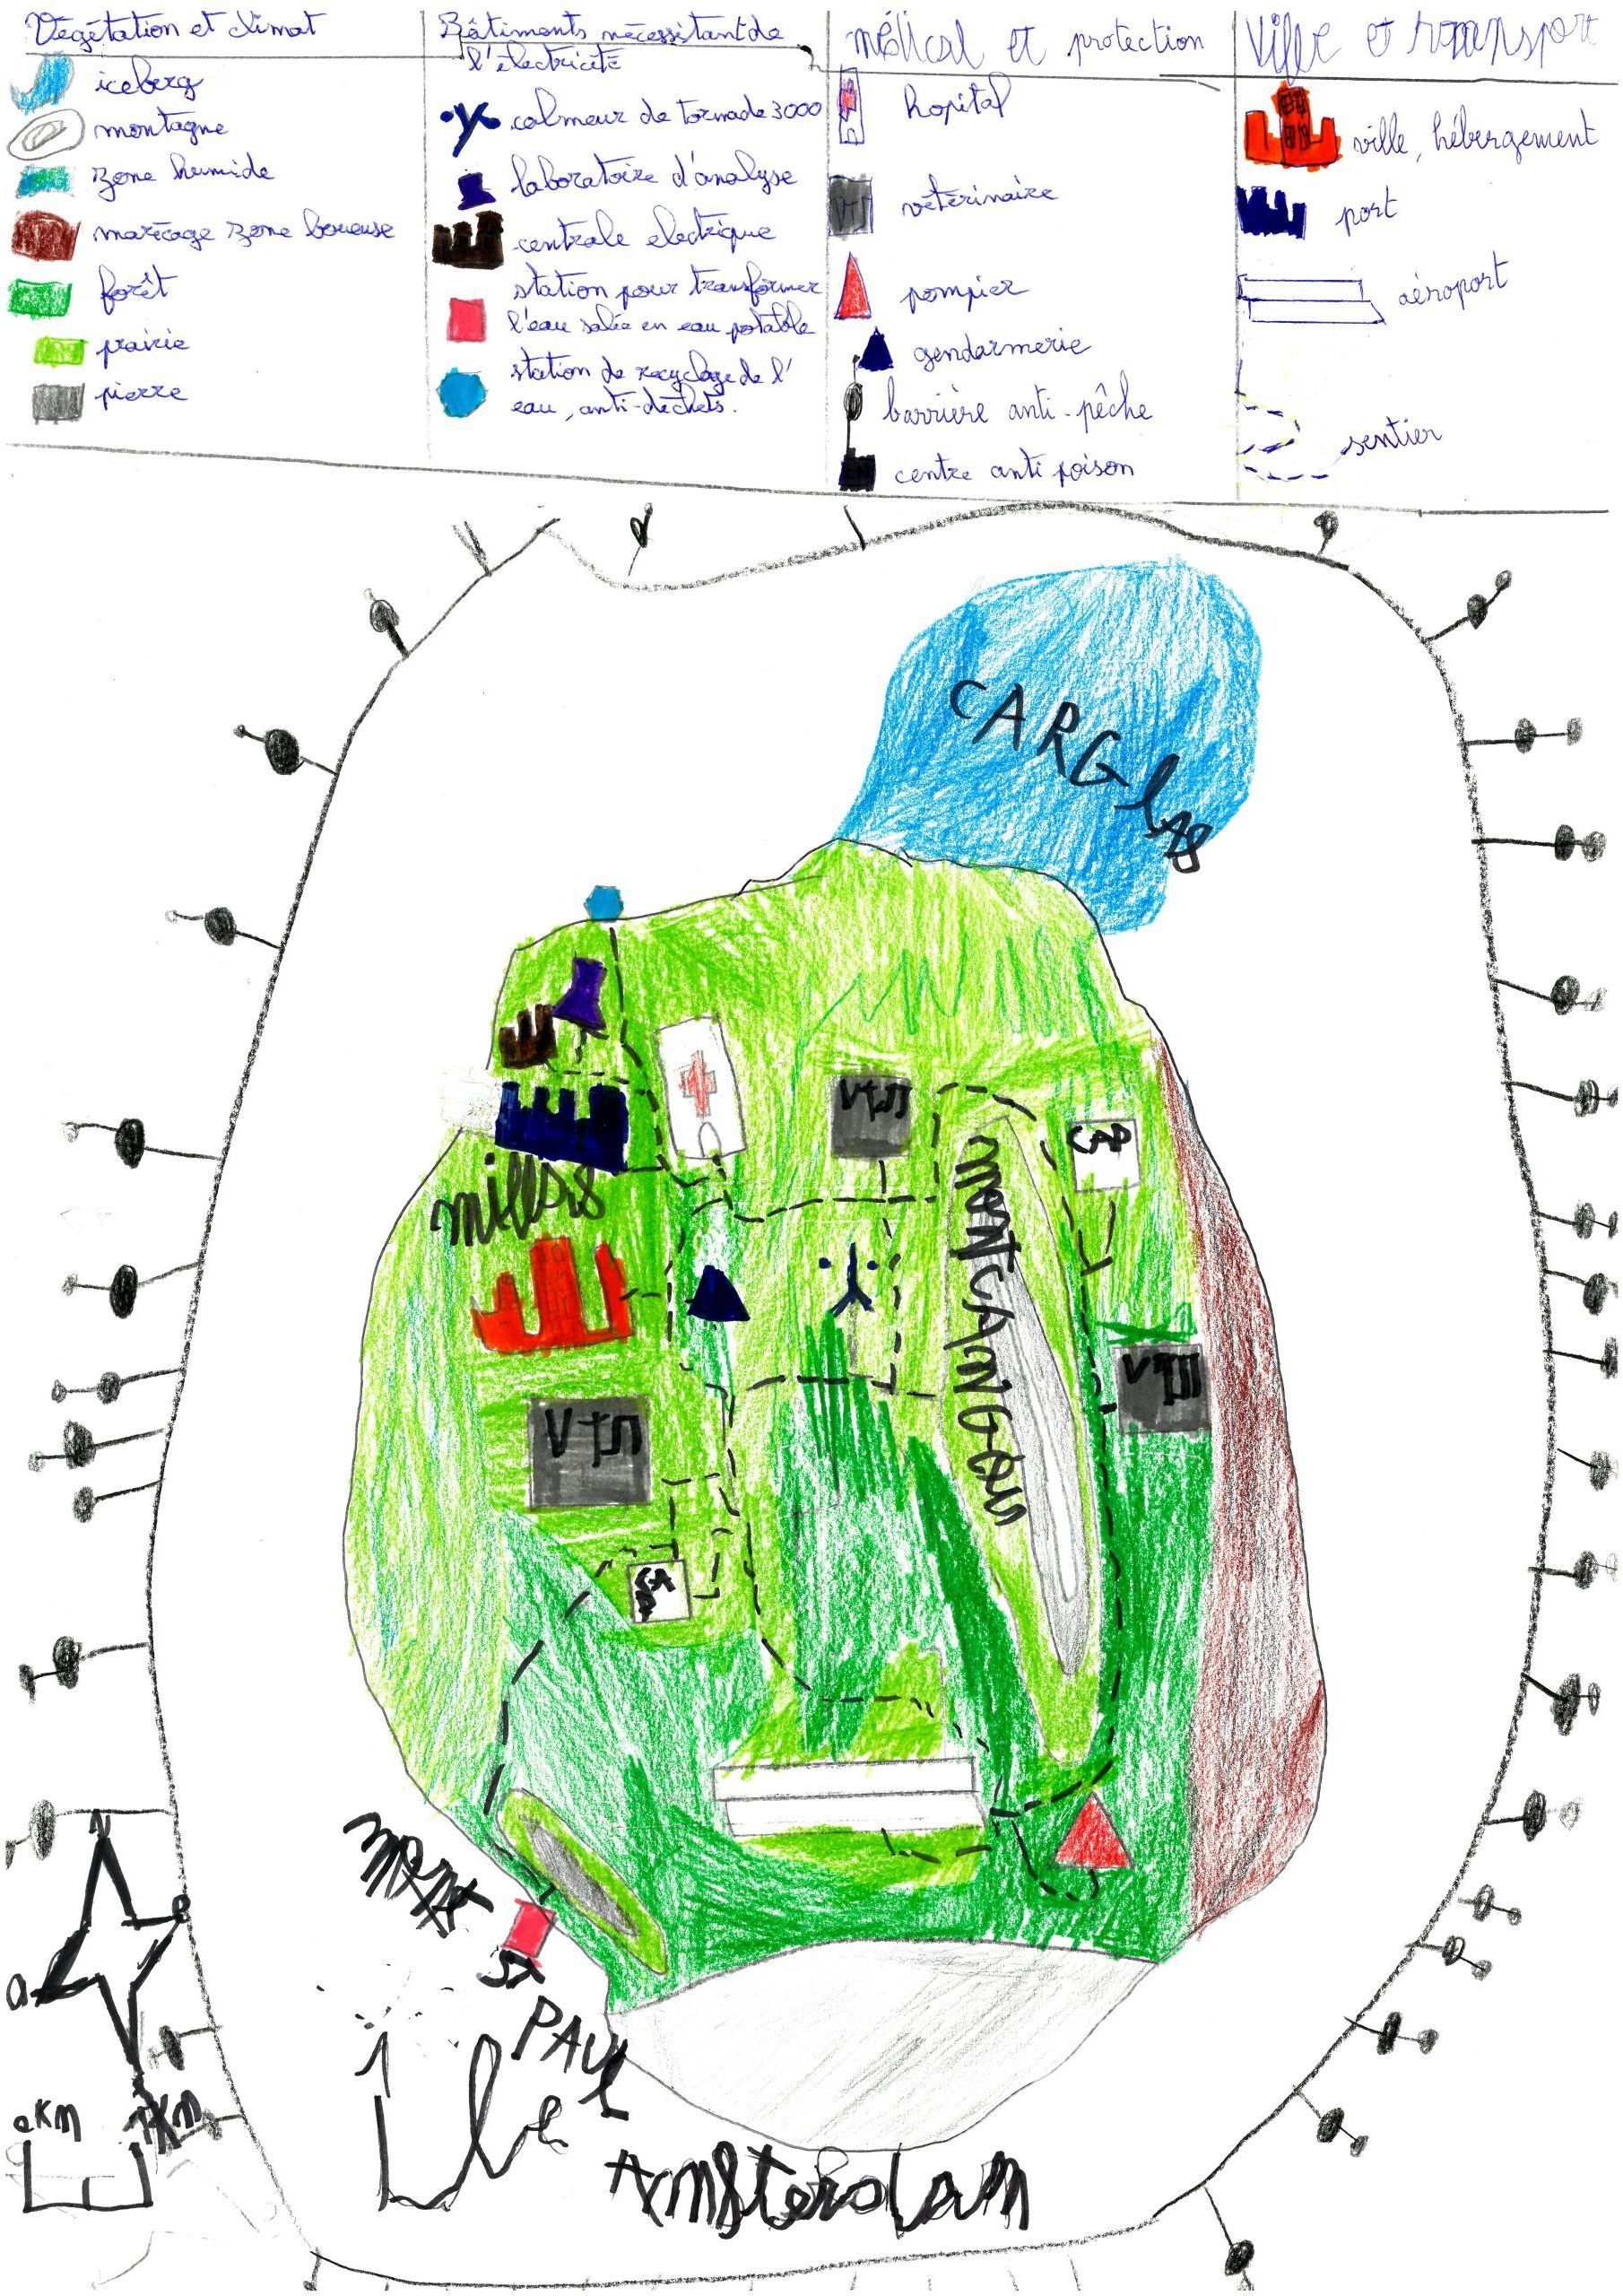 Végétation et climat
iceberg
montagne
zone humide
marécage zone boueuse
forêt
prairie
pierre
Bâtiments nécessitant de
l'électricité
calmeur de tornade 3000
laboratoire d'analyse
centrale electrique
station pour transformer
l'eau salée en eau potable
station de recyclage de l'
eau, anti-déchets.
médical et protection
hopital
vétérinaire
pompier
gendarmerie
barrière anti-pêche
centre anti poison
Ville et transport
ville, hébergement
port
aéroport
sentier
CARGlas
millsis
MONTCANGOUS
CAP
CAP
ST
PAUl
île
Amsterdam
N
E
0KM 1KM